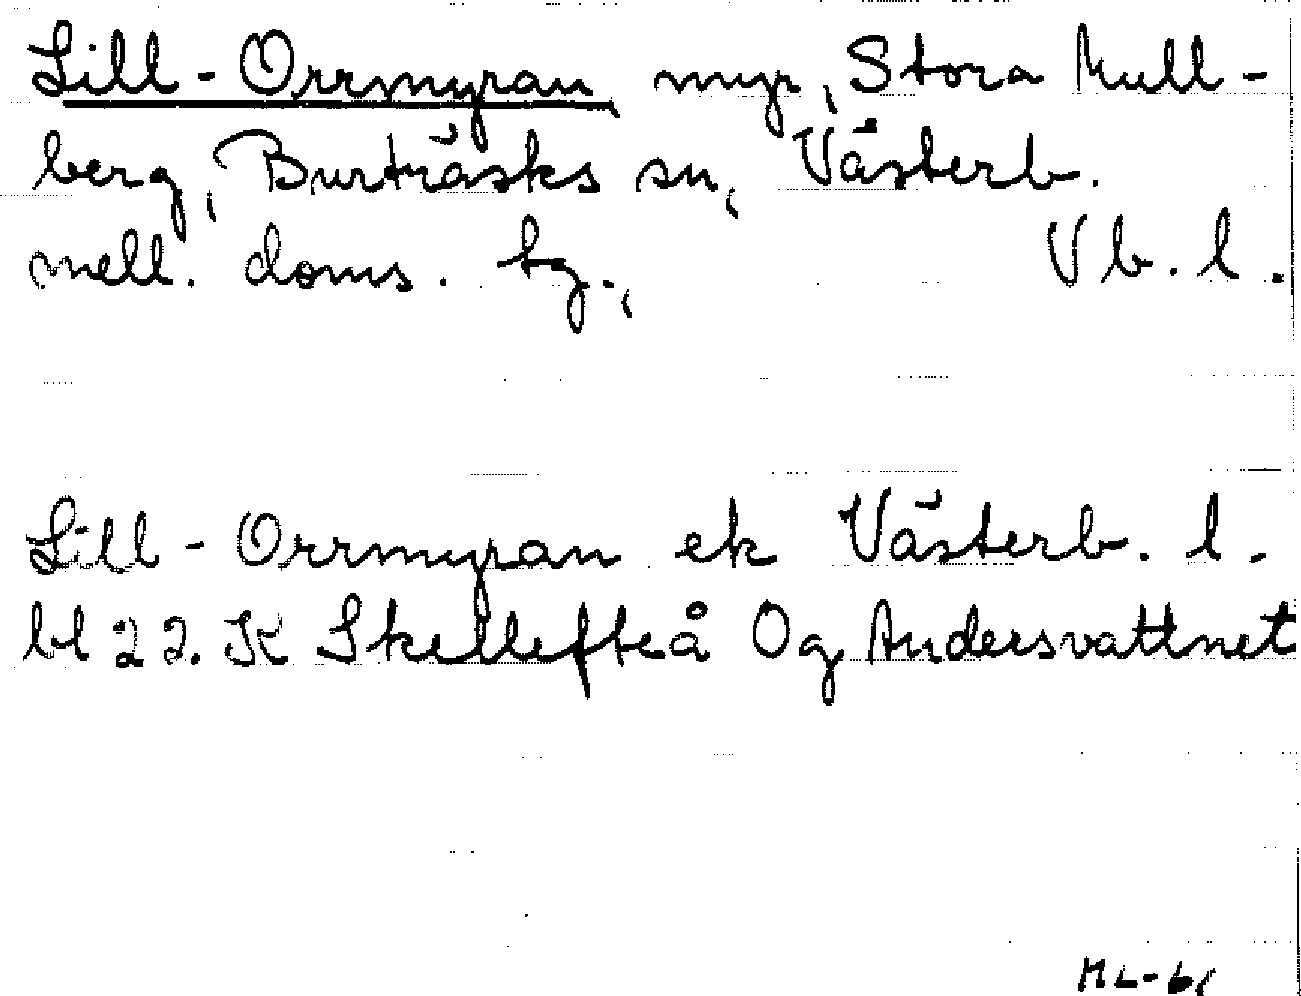 Lill-Orrmyran, myr, Stora Kull-
berg, Burträsks sn, Västerb.
mell. doms. tg., Vb. l.
Lill-Orrmyran ek Västerb. l.
bl 22. K Skellefteå Og Andersvattnet
ML-61